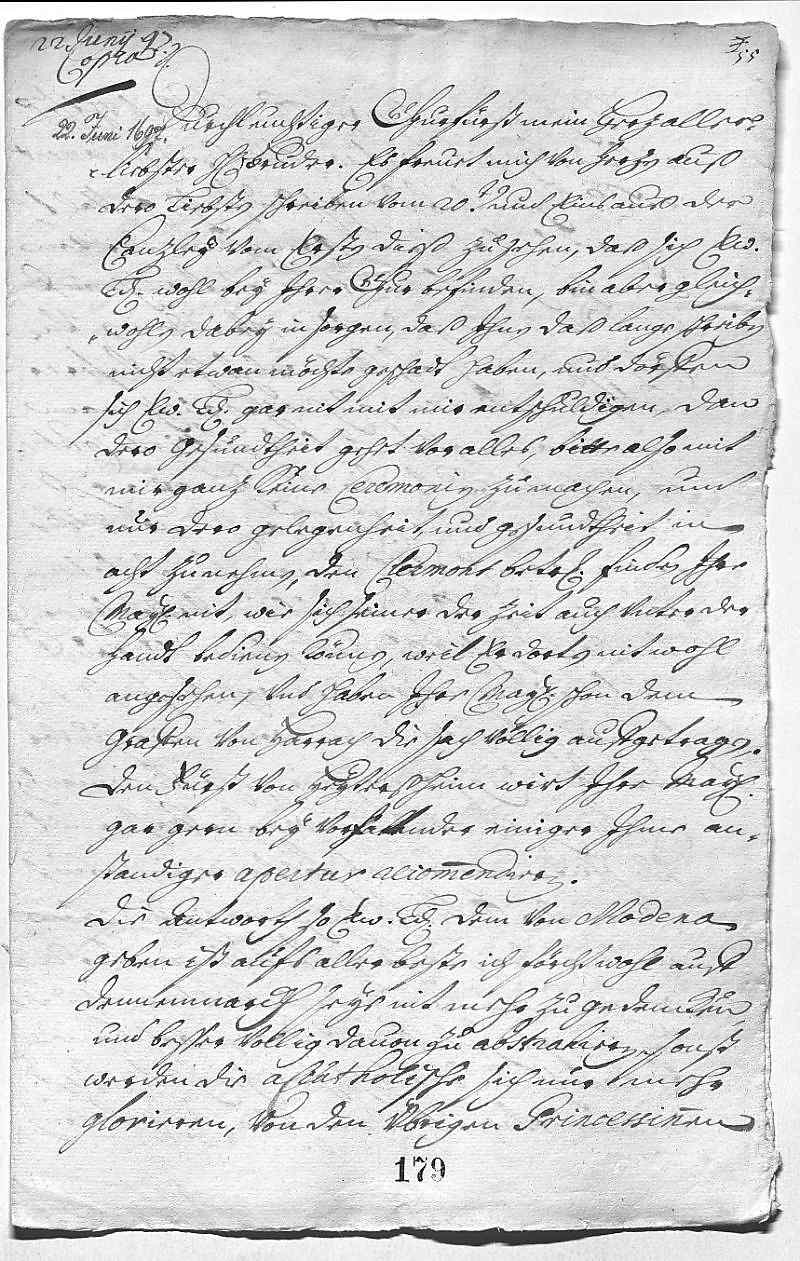 22 Junij 97.
Copia
22. Juni 1697.
Durchleuchtigster Churfürst mein Herzaller-
liebster H: Bruder. Es freuet mich von Herzen auß
dero liebsten schreiben vom 20.t und Eins auß der
Canzley vom Ersten diß zu sehen, daß sich Ew.
Ld. wohl bey Ihrer Chur befinden, bin aber gleich-
wohln dabey in sorgen, daß Ihnen daß lange schreiben
nicht etwan möchte geschadt haben, und dörffen
sich Ew. Ld. gar nit mit mir entschuldigen, dan
dero Gesundtheit gehet vor alles, bitte also mit
mir ganz keine Ceremonien zu machen, und
nur dero gelegenheit, und gesundtheit in
acht zu nehmen, den Clermont betrf. finden Ihre
Mayt. nit, wie sich seiner der Zeit auch unter der
Handt bedienen können, weil Er dorten nit wohl
angesehen, und haben Ihre Mayt. schon dem
Graffen von Harrach die sach völlig auffgetragen.
Den Fürst von Heytersheim wirt Ihre Mayt.
gar gern bey vorfallender einiger Ihme an-
ständiger apertur recommendiren.
Die Antwort so Ew. Ld. dem von Modena
geben ist aufs aller beste ich förcht wohl auff
Dennemarckh seye nit mehr zu gedenckhen
und besser völlig davon zu abstrahiren, sonst
werden die aCatholische sich nur mehr
glorieren, von den übrigen Princessinnen
179